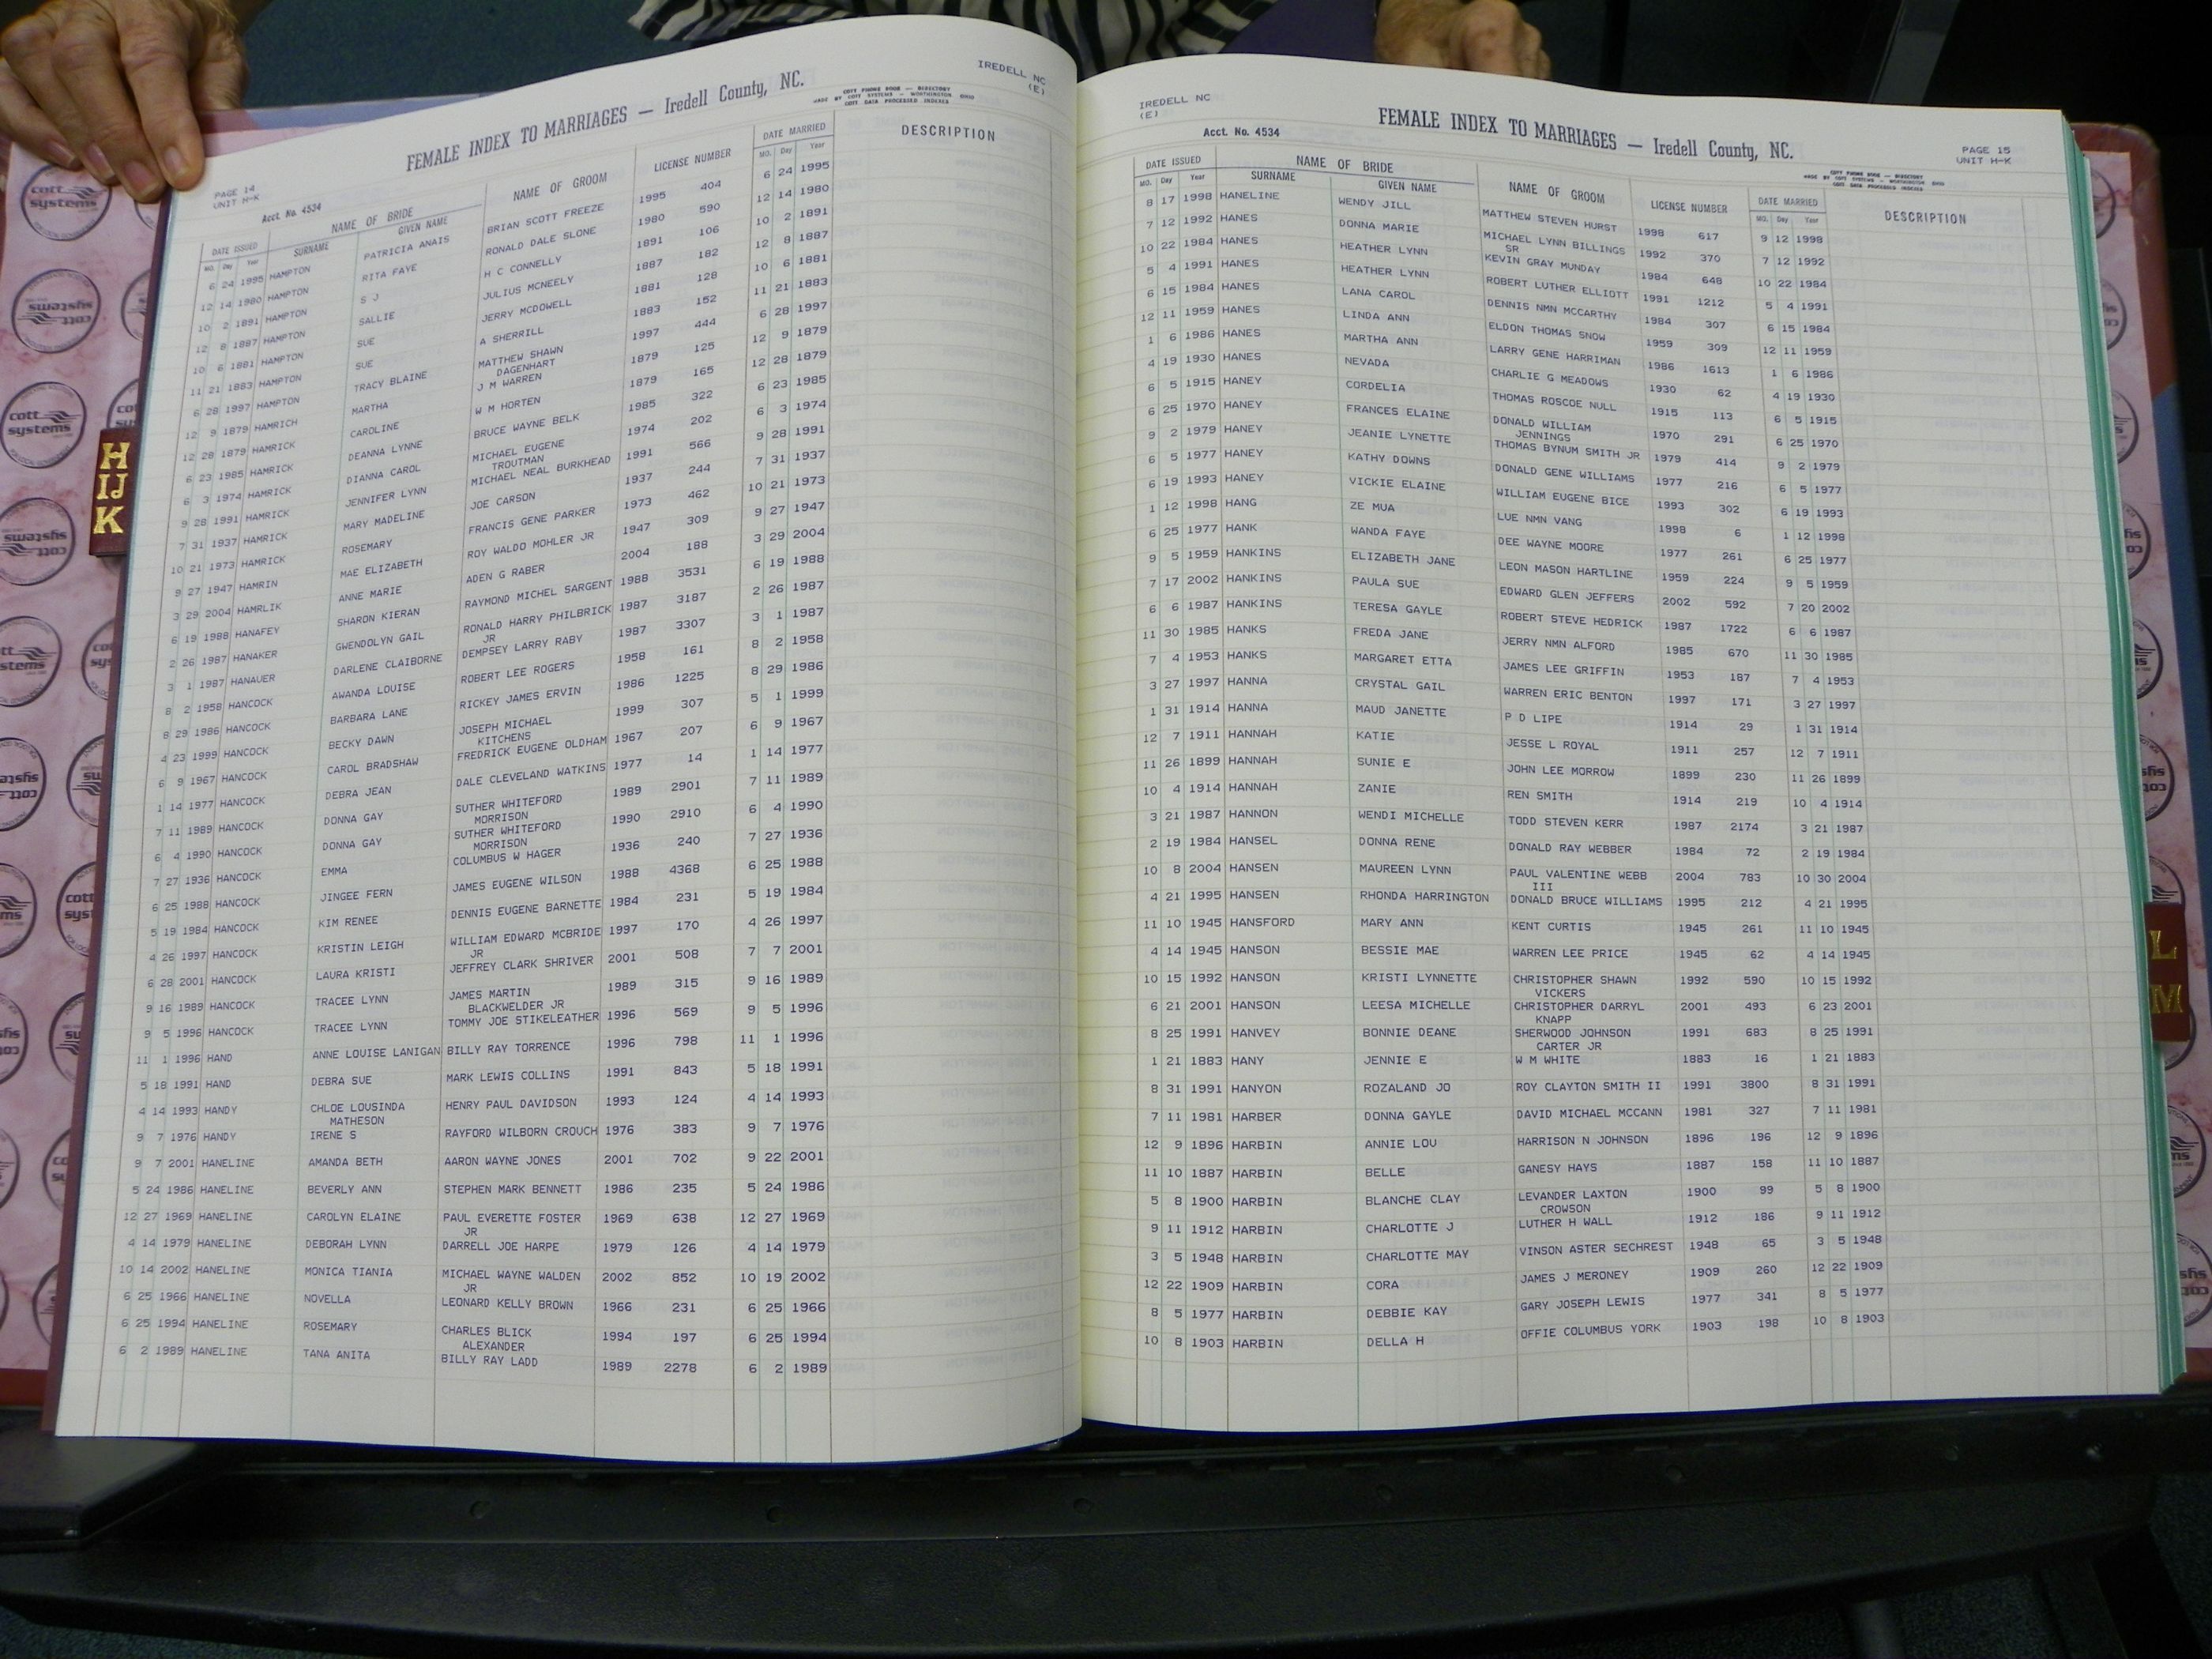 FEMALE INDEX TO MARRIAGES — Iredell County, NC.
IREDELL NC
(E)
COTT PHONE BOOK — DIRECTORY
MADE BY COTT SYSTEMS — WORTHINGTON OHIO
COTT DATA PROCESSED INDEXES
PAGE 14
UNIT H-K
Acct. No. 4534
DATE ISSUED NAME OF BRIDE NAME OF GROOM LICENSE NUMBER DATE MARRIED DESCRIPTION
MO. Day Year SURNAME GIVEN NAME MO. Day Year
6 24 1995 HAMPTON PATRICIA ANAIS BRIAN SCOTT FREEZE 1995 404 6 24 1995
12 14 1980 HAMPTON RITA FAYE RONALD DALE SLONE 1980 590 12 14 1980
10 2 1891 HAMPTON S J H C CONNELLY 1891 106 10 2 1891
12 8 1887 HAMPTON SALLIE JULIUS MCNEELY 1887 182 12 8 1887
10 6 1881 HAMPTON SUE JERRY MCDOWELL 1881 128 10 6 1881
11 21 1883 HAMPTON SUE A SHERRILL 1883 152 11 21 1883
6 28 1997 HAMPTON TRACY BLAINE MATTHEW SHAWN 1997 444 6 28 1997
DAGENHART
12 9 1879 HAMRICH MARTHA J M WARREN 1879 125 12 9 1879
12 28 1879 HAMRICK CAROLINE W M HORTEN 1879 165 12 28 1879
6 23 1985 HAMRICK DEANNA LYNNE BRUCE WAYNE BELK 1985 322 6 23 1985
6 3 1974 HAMRICK DIANNA CAROL MICHAEL EUGENE 1974 202 6 3 1974
TROUTMAN
9 28 1991 HAMRICK JENNIFER LYNN MICHAEL NEAL BURKHEAD 1991 566 9 28 1991
7 31 1937 HAMRICK MARY MADELINE JOE CARSON 1937 244 7 31 1937
10 21 1973 HAMRICK ROSEMARY FRANCIS GENE PARKER 1973 462 10 21 1973
9 27 1947 HAMRIN MAE ELIZABETH ROY WALDO MOHLER JR 1947 309 9 27 1947
3 29 2004 HAMRLIK ANNE MARIE ADEN G RABER 2004 188 3 29 2004
6 19 1988 HANAFEY SHARON KIERAN RAYMOND MICHEL SARGENT 1988 3531 6 19 1988
2 26 1987 HANAKER GWENDOLYN GAIL RONALD HARRY PHILBRICK 1987 3187 2 26 1987
JR
3 1 1987 HANAUER DARLENE CLAIBORNE DEMPSEY LARRY RABY 1987 3307 3 1 1987
8 2 1958 HANCOCK AWANDA LOUISE ROBERT LEE ROGERS 1958 161 8 2 1958
8 29 1986 HANCOCK BARBARA LANE RICKEY JAMES ERVIN 1986 1225 8 29 1986
4 23 1999 HANCOCK BECKY DAWN JOSEPH MICHAEL 1999 307 5 1 1999
KITCHENS
6 9 1967 HANCOCK CAROL BRADSHAW FREDRICK EUGENE OLDHAM 1967 207 6 9 1967
1 14 1977 HANCOCK DEBRA JEAN DALE CLEVELAND WATKINS 1977 14 1 14 1977
7 11 1989 HANCOCK DONNA GAY SUTHER WHITEFORD 1989 2901 7 11 1989
MORRISON
6 4 1990 HANCOCK DONNA GAY SUTHER WHITEFORD 1990 2910 6 4 1990
MORRISON
7 27 1936 HANCOCK EMMA COLUMBUS W HAGER 1936 240 7 27 1936
6 25 1988 HANCOCK JINGEE FERN JAMES EUGENE WILSON 1988 4368 6 25 1988
5 19 1984 HANCOCK KIM RENEE DENNIS EUGENE BARNETTE 1984 231 5 19 1984
4 26 1997 HANCOCK KRISTIN LEIGH WILLIAM EDWARD MCBRIDE 1997 170 4 26 1997
JR
6 28 2001 HANCOCK LAURA KRISTI JEFFREY CLARK SHRIVER 2001 508 7 7 2001
9 16 1989 HANCOCK TRACEE LYNN JAMES MARTIN 1989 315 9 16 1989
BLACKWELDER JR
9 5 1996 HANCOCK TRACEE LYNN TOMMY JOE STIKELEATHER 1996 569 9 5 1996
11 1 1996 HAND ANNE LOUISE LANIGAN BILLY RAY TORRENCE 1996 798 11 1 1996
5 18 1991 HAND DEBRA SUE MARK LEWIS COLLINS 1991 843 5 18 1991
4 14 1993 HANDY CHLOE LOUSINDA HENRY PAUL DAVIDSON 1993 124 4 14 1993
MATHESON
9 7 1976 HANDY IRENE S RAYFORD WILBORN CROUCH 1976 383 9 7 1976
9 7 2001 HANELINE AMANDA BETH AARON WAYNE JONES 2001 702 9 22 2001
5 24 1986 HANELINE BEVERLY ANN STEPHEN MARK BENNETT 1986 235 5 24 1986
12 27 1969 HANELINE CAROLYN ELAINE PAUL EVERETTE FOSTER 1969 638 12 27 1969
JR
4 14 1979 HANELINE DEBORAH LYNN DARRELL JOE HARPE 1979 126 4 14 1979
10 14 2002 HANELINE MONICA TIANIA MICHAEL WAYNE WALDEN 2002 852 10 19 2002
JR
6 25 1966 HANELINE NOVELLA LEONARD KELLY BROWN 1966 231 6 25 1966
6 25 1994 HANELINE ROSEMARY CHARLES BLICK 1994 197 6 25 1994
ALEXANDER
6 2 1989 HANELINE TANA ANITA BILLY RAY LADD 1989 2278 6 2 1989
IREDELL NC
(E)
FEMALE INDEX TO MARRIAGES — Iredell County, NC.
Acct. No. 4534
PAGE 15
UNIT H-K
COTT PHONE BOOK — DIRECTORY
MADE BY COTT SYSTEMS — WORTHINGTON OHIO
COTT DATA PROCESSED INDEXES
DATE ISSUED NAME OF BRIDE NAME OF GROOM LICENSE NUMBER DATE MARRIED DESCRIPTION
MO. Day Year SURNAME GIVEN NAME MO. Day Year
8 17 1998 HANELINE WENDY JILL MATTHEW STEVEN HURST 1998 617 9 12 1998
7 12 1992 HANES DONNA MARIE MICHAEL LYNN BILLINGS 1992 370 7 12 1992
SR
10 22 1984 HANES HEATHER LYNN KEVIN GRAY MUNDAY 1984 648 10 22 1984
5 4 1991 HANES HEATHER LYNN ROBERT LUTHER ELLIOTT 1991 1212 5 4 1991
6 15 1984 HANES LANA CAROL DENNIS NMN MCCARTHY 1984 307 6 15 1984
12 11 1959 HANES LINDA ANN ELDON THOMAS SNOW 1959 309 12 11 1959
1 6 1986 HANES MARTHA ANN LARRY GENE HARRIMAN 1986 1613 1 6 1986
4 19 1930 HANES NEVADA CHARLIE G MEADOWS 1930 62 4 19 1930
6 5 1915 HANEY CORDELIA THOMAS ROSCOE NULL 1915 113 6 5 1915
6 25 1970 HANEY FRANCES ELAINE DONALD WILLIAM 1970 291 6 25 1970
JENNINGS
9 2 1979 HANEY JEANIE LYNETTE THOMAS BYNUM SMITH JR 1979 414 9 2 1979
6 5 1977 HANEY KATHY DOWNS DONALD GENE WILLIAMS 1977 216 6 5 1977
6 19 1993 HANEY VICKIE ELAINE WILLIAM EUGENE BICE 1993 302 6 19 1993
1 12 1998 HANG ZE MUA LUE NMN VANG 1998 6 1 12 1998
6 25 1977 HANK WANDA FAYE DEE WAYNE MOORE 1977 261 6 25 1977
9 5 1959 HANKINS ELIZABETH JANE LEON MASON HARTLINE 1959 224 9 5 1959
7 17 2002 HANKINS PAULA SUE EDWARD GLEN JEFFERS 2002 592 7 20 2002
6 6 1987 HANKINS TERESA GAYLE ROBERT STEVE HEDRICK 1987 1722 6 6 1987
11 30 1985 HANKS FREDA JANE JERRY NMN ALFORD 1985 670 11 30 1985
7 4 1953 HANKS MARGARET ETTA JAMES LEE GRIFFIN 1953 187 7 4 1953
3 27 1997 HANNA CRYSTAL GAIL WARREN ERIC BENTON 1997 171 3 27 1997
1 31 1914 HANNA MAUD JANETTE P D LIPE 1914 29 1 31 1914
12 7 1911 HANNAH KATIE JESSE L ROYAL 1911 257 12 7 1911
11 26 1899 HANNAH SUNIE E JOHN LEE MORROW 1899 230 11 26 1899
10 4 1914 HANNAH ZANIE REN SMITH 1914 219 10 4 1914
3 21 1987 HANNON WENDI MICHELLE TODD STEVEN KERR 1987 2174 3 21 1987
2 19 1984 HANSEL DONNA RENE DONALD RAY WEBBER 1984 72 2 19 1984
10 8 2004 HANSEN MAUREEN LYNN PAUL VALENTINE WEBB 2004 783 10 30 2004
III
4 21 1995 HANSEN RHONDA HARRINGTON DONALD BRUCE WILLIAMS 1995 212 4 21 1995
11 10 1945 HANSFORD MARY ANN KENT CURTIS 1945 261 11 10 1945
4 14 1945 HANSON BESSIE MAE WARREN LEE PRICE 1945 62 4 14 1945
10 15 1992 HANSON KRISTI LYNNETTE CHRISTOPHER SHAWN 1992 590 10 15 1992
VICKERS
6 21 2001 HANSON LEESA MICHELLE CHRISTOPHER DARRYL 2001 493 6 23 2001
KNAPP
8 25 1991 HANVEY BONNIE DEANE SHERWOOD JOHNSON 1991 683 8 25 1991
CARTER JR
1 21 1883 HANY JENNIE E W M WHITE 1883 16 1 21 1883
8 31 1991 HANYON ROZALAND JO ROY CLAYTON SMITH II 1991 3800 8 31 1991
7 11 1981 HARBER DONNA GAYLE DAVID MICHAEL MCCANN 1981 327 7 11 1981
12 9 1896 HARBIN ANNIE LOU HARRISON N JOHNSON 1896 196 12 9 1896
11 10 1887 HARBIN BELLE GANESY HAYS 1887 158 11 10 1887
5 8 1900 HARBIN BLANCHE CLAY LEVANDER LAXTON 1900 99 5 8 1900
CROWSON
9 11 1912 HARBIN CHARLOTTE J LUTHER H WALL 1912 186 9 11 1912
3 5 1948 HARBIN CHARLOTTE MAY VINSON ASTER SECHREST 1948 65 3 5 1948
12 22 1909 HARBIN CORA JAMES J MERONEY 1909 260 12 22 1909
8 5 1977 HARBIN DEBBIE KAY GARY JOSEPH LEWIS 1977 341 8 5 1977
10 8 1903 HARBIN DELLA H OFFIE COLUMBUS YORK 1903 198 10 8 1903
H
IJ
K
L
M
cott
systems